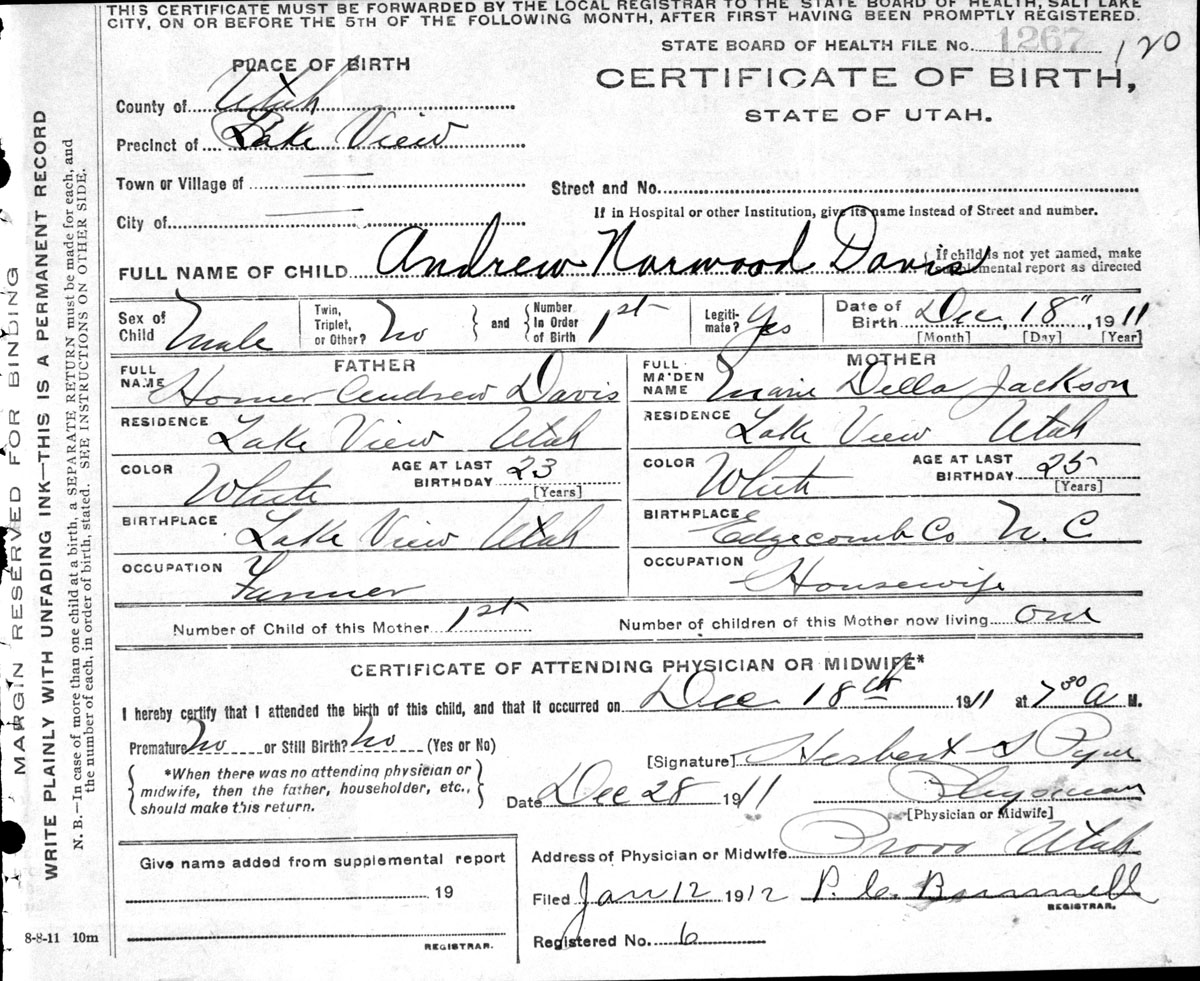 THIS CERTIFICATE MUST BE FORWARDED BY THE LOCAL REGISTRAR TO THE STATE BOARD OF HEALTH, SALT LAKE
CITY, ON OR BEFORE THE 5TH OF THE FOLLOWING MONTH, AFTER FIRST HAVING BEEN PROMPTLY REGISTERED.
STATE BOARD OF HEALTH FILE No. 1267 120
PLACE OF BIRTH
CERTIFICATE OF BIRTH,
STATE OF UTAH.
County of Utah
Precinct of Lake View
Town or Village of
Street and No.
City of
If in Hospital or other Institution, give its name instead of Street and number.
FULL NAME OF CHILD Andrew Norwood Davis
If child is not yet named, make
supplemental report as directed
Sex of Child Male
Twin, Triplet, or Other? No
and Number In Order of Birth 1st
Legiti-mate? Yes
Date of Birth Dec, 18", 1911
[Month] [Day] [Year]
FATHER
FULL NAME Homer Andrew Davis
RESIDENCE Lake View Utah
COLOR White
AGE AT LAST BIRTHDAY 23
[Years]
BIRTHPLACE Lake View Utah
OCCUPATION Farmer
MOTHER
FULL MAIDEN NAME Marie Della Jackson
RESIDENCE Lake View Utah
COLOR White
AGE AT LAST BIRTHDAY 25
[Years]
BIRTHPLACE Edgecomb Co N. C
OCCUPATION Housewife
Number of Child of this Mother 1st
Number of children of this Mother now living one
CERTIFICATE OF ATTENDING PHYSICIAN OR MIDWIFE*
I hereby certify that I attended the birth of this child, and that it occurred on Dec 18th 1911 at 7 30 a M.
Premature No or Still Birth? No (Yes or No)
*When there was no attending physician or
midwife, then the father, householder, etc.,
should make this return.
[Signature] Herbert S Pyne
Date Dec 28 1911
Physician
[Physician or Midwife]
Give name added from supplemental report
19
REGISTRAR.
Address of Physician or Midwife Provo Utah
Filed Jan 12 1912 P. C.
REGISTRAR.
Registered No. 6
8-8-11 10m
MARGIN RESERVED FOR BINDING
WRITE PLAINLY WITH UNFADING INK—THIS IS A PERMANENT RECORD
N. B.—In case of more than one child at a birth, a SEPARATE RETURN must be made for each, and
the number of each, in order of birth, stated. SEE INSTRUCTIONS ON OTHER SIDE.